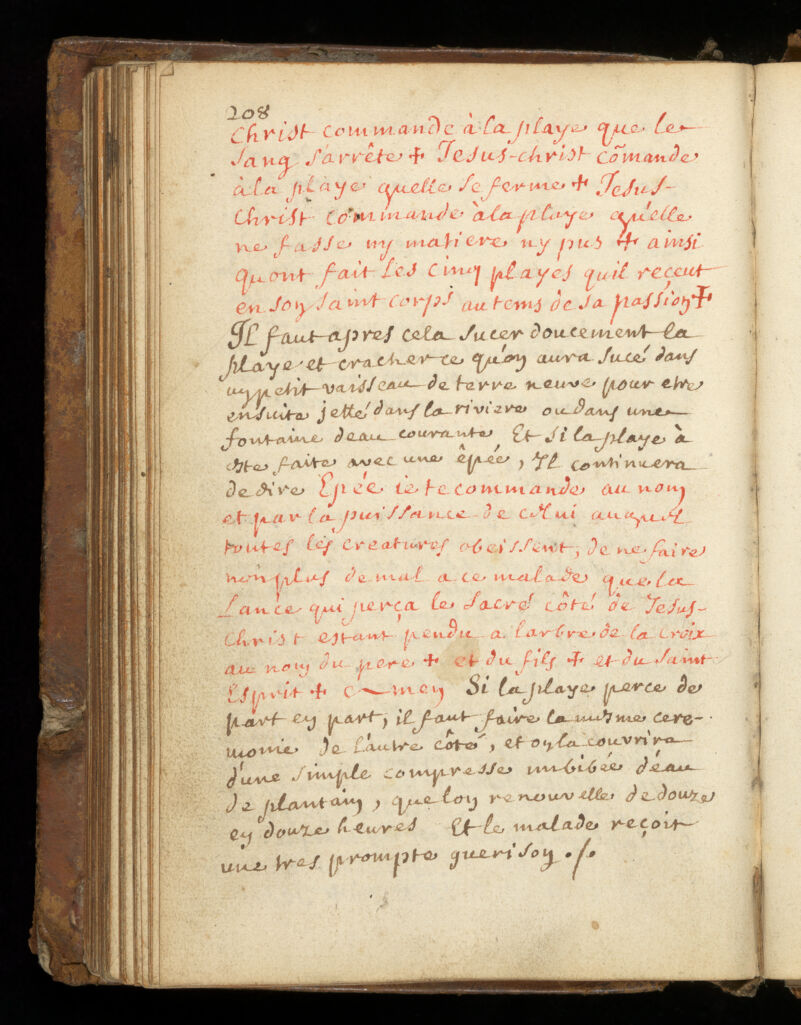 208
Christ commande à la playe que le
sang s'arrête + Jesus-christ cõmande
à la playe quelle se ferme + Jesus-
Christ commande à la playe qu'elle
ne fasse ny matiere ny pus + ainsi
quont fait les cinq playes quil reçeut
en son saint corps au tems de sa passion +
Il faut apres cela sucer doucement la
playe et cracher ce qu'on aura sucé dans
un petit vaisseau de terre neuve pour etre
ensuite jetté dans la riviere ou dans une
fontaine deau courante, Et si la playe à
este faite avec une êpée, Il continuera
de dire Epée ie te commande au nom
et par la puissance de celui auquel
toutes les creatures obeissent, de ne faire
non plus de mal a ce malade que la
Lance qui perça le sacré côté de Jesus-
Christ estant pendu a l'arbre de la croix
au nom du pere + et du fils + et du saint
Esprit + Amen Si la playe perce de
part en part, il faut faire la mesme cere-
monie de l'autre côté, et on la couvrira
d'une simple compresse imbibée d'éau
de plantain, que lon renouvelle de douze
en douze heures Et le malade reçoit
une tres prompte guerison ./.